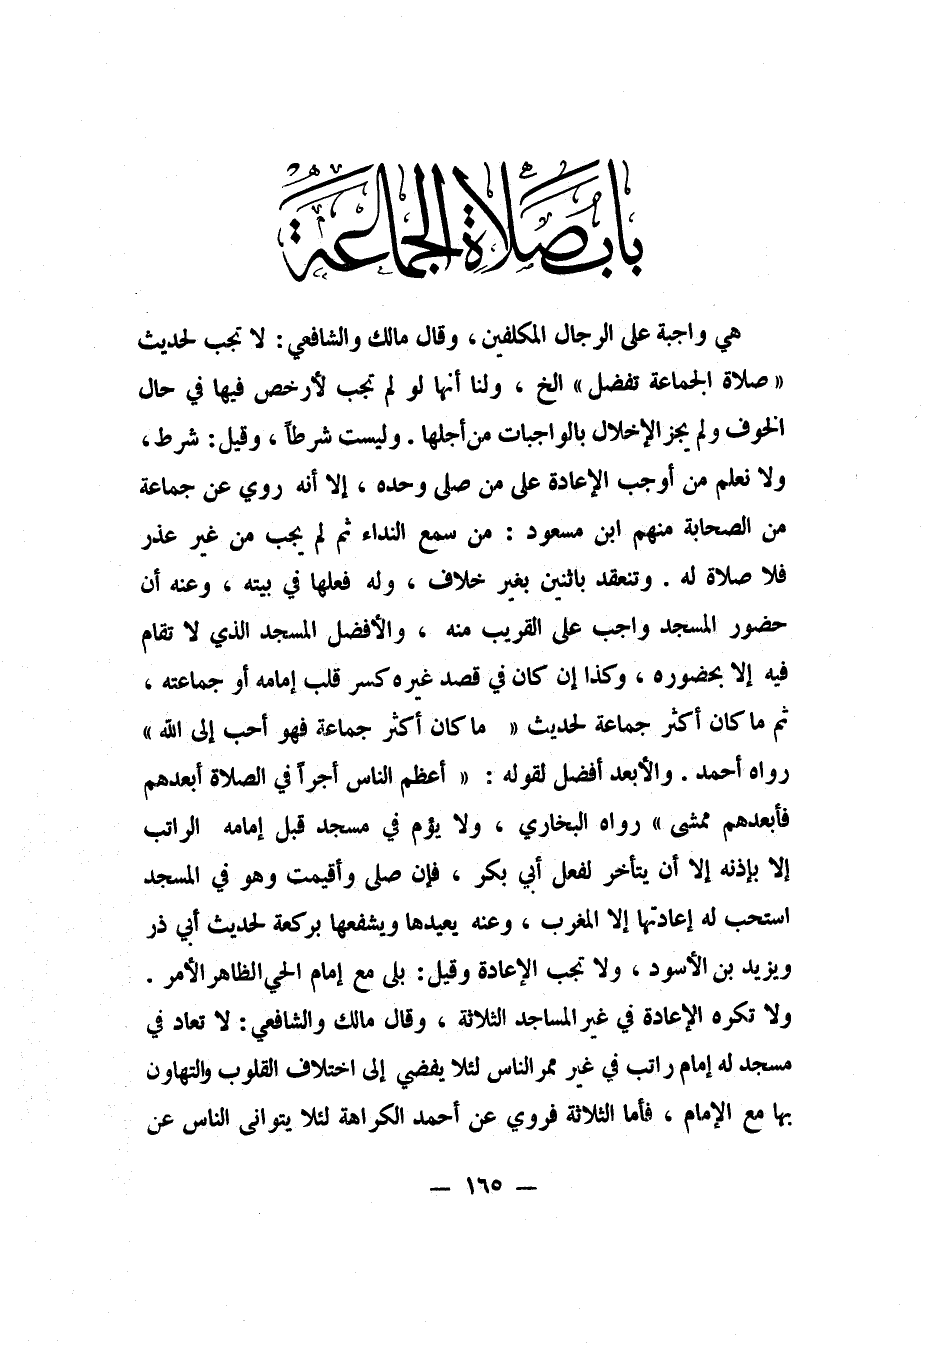 باب صلاة الجماعة
هي واجبة على الرجال المكلفين ، وقال مالك والشافعي : لا تجب لحديث
« صلاة الجماعة تفضل » الخ ، ولنا أنها لو لم تجب لأرخص فيها في حال
الخوف ولم يجز الإخلال بالواجبات من أجلها . وليست شرطاً ، وقيل : شرط ،
ولا نعلم من أوجب الإعادة على من صلى وحده ، إلا أنه روي عن جماعة
من الصحابة منهم ابن مسعود : من سمع النداء ثم لم يجب من غير عذر
فلا صلاة له . وتنعقد باثنين بغير خلاف ، وله فعلها في بيته ، وعنه أن
حضور المسجد واجب على القريب منه ، والأفضل المسجد الذي لا تقام
فيه إلا بحضوره ، وكذا إن كان في قصد غيره كسر قلب إمامه أو جماعته ،
ثم ما كان أكثر جماعة لحديث « ما كان أكثر جماعة فهو أحب إلى الله »
رواه أحمد . والأبعد أفضل لقوله : « أعظم الناس أجراً في الصلاة أبعدهم
فأبعدهم ممشى » رواه البخاري ، ولا يؤم في مسجد قبل إمامه الراتب
إلا بإذنه إلا أن يتأخر لفعل أبي بكر ، فإن صلى وأقيمت وهو في المسجد
استحب له إعادتها إلا المغرب ، وعنه يعيدها ويشفعها بركعة لحديث أبي ذر
ويزيد بن الأسود ، ولا تجب الإعادة وقيل : بلى مع إمام الحي الظاهر الأمر .
ولا تكره الإعادة في غير المساجد الثلاثة ، وقال مالك والشافعي : لا تعاد في
مسجد له إمام راتب في غير ممر الناس لئلا يفضي إلى اختلاف القلوب والتهاون
بها مع الإمام ، فأما الثلاثة فروي عن أحمد الكراهة لئلا يتوانى الناس عن
— ١٦٥ —